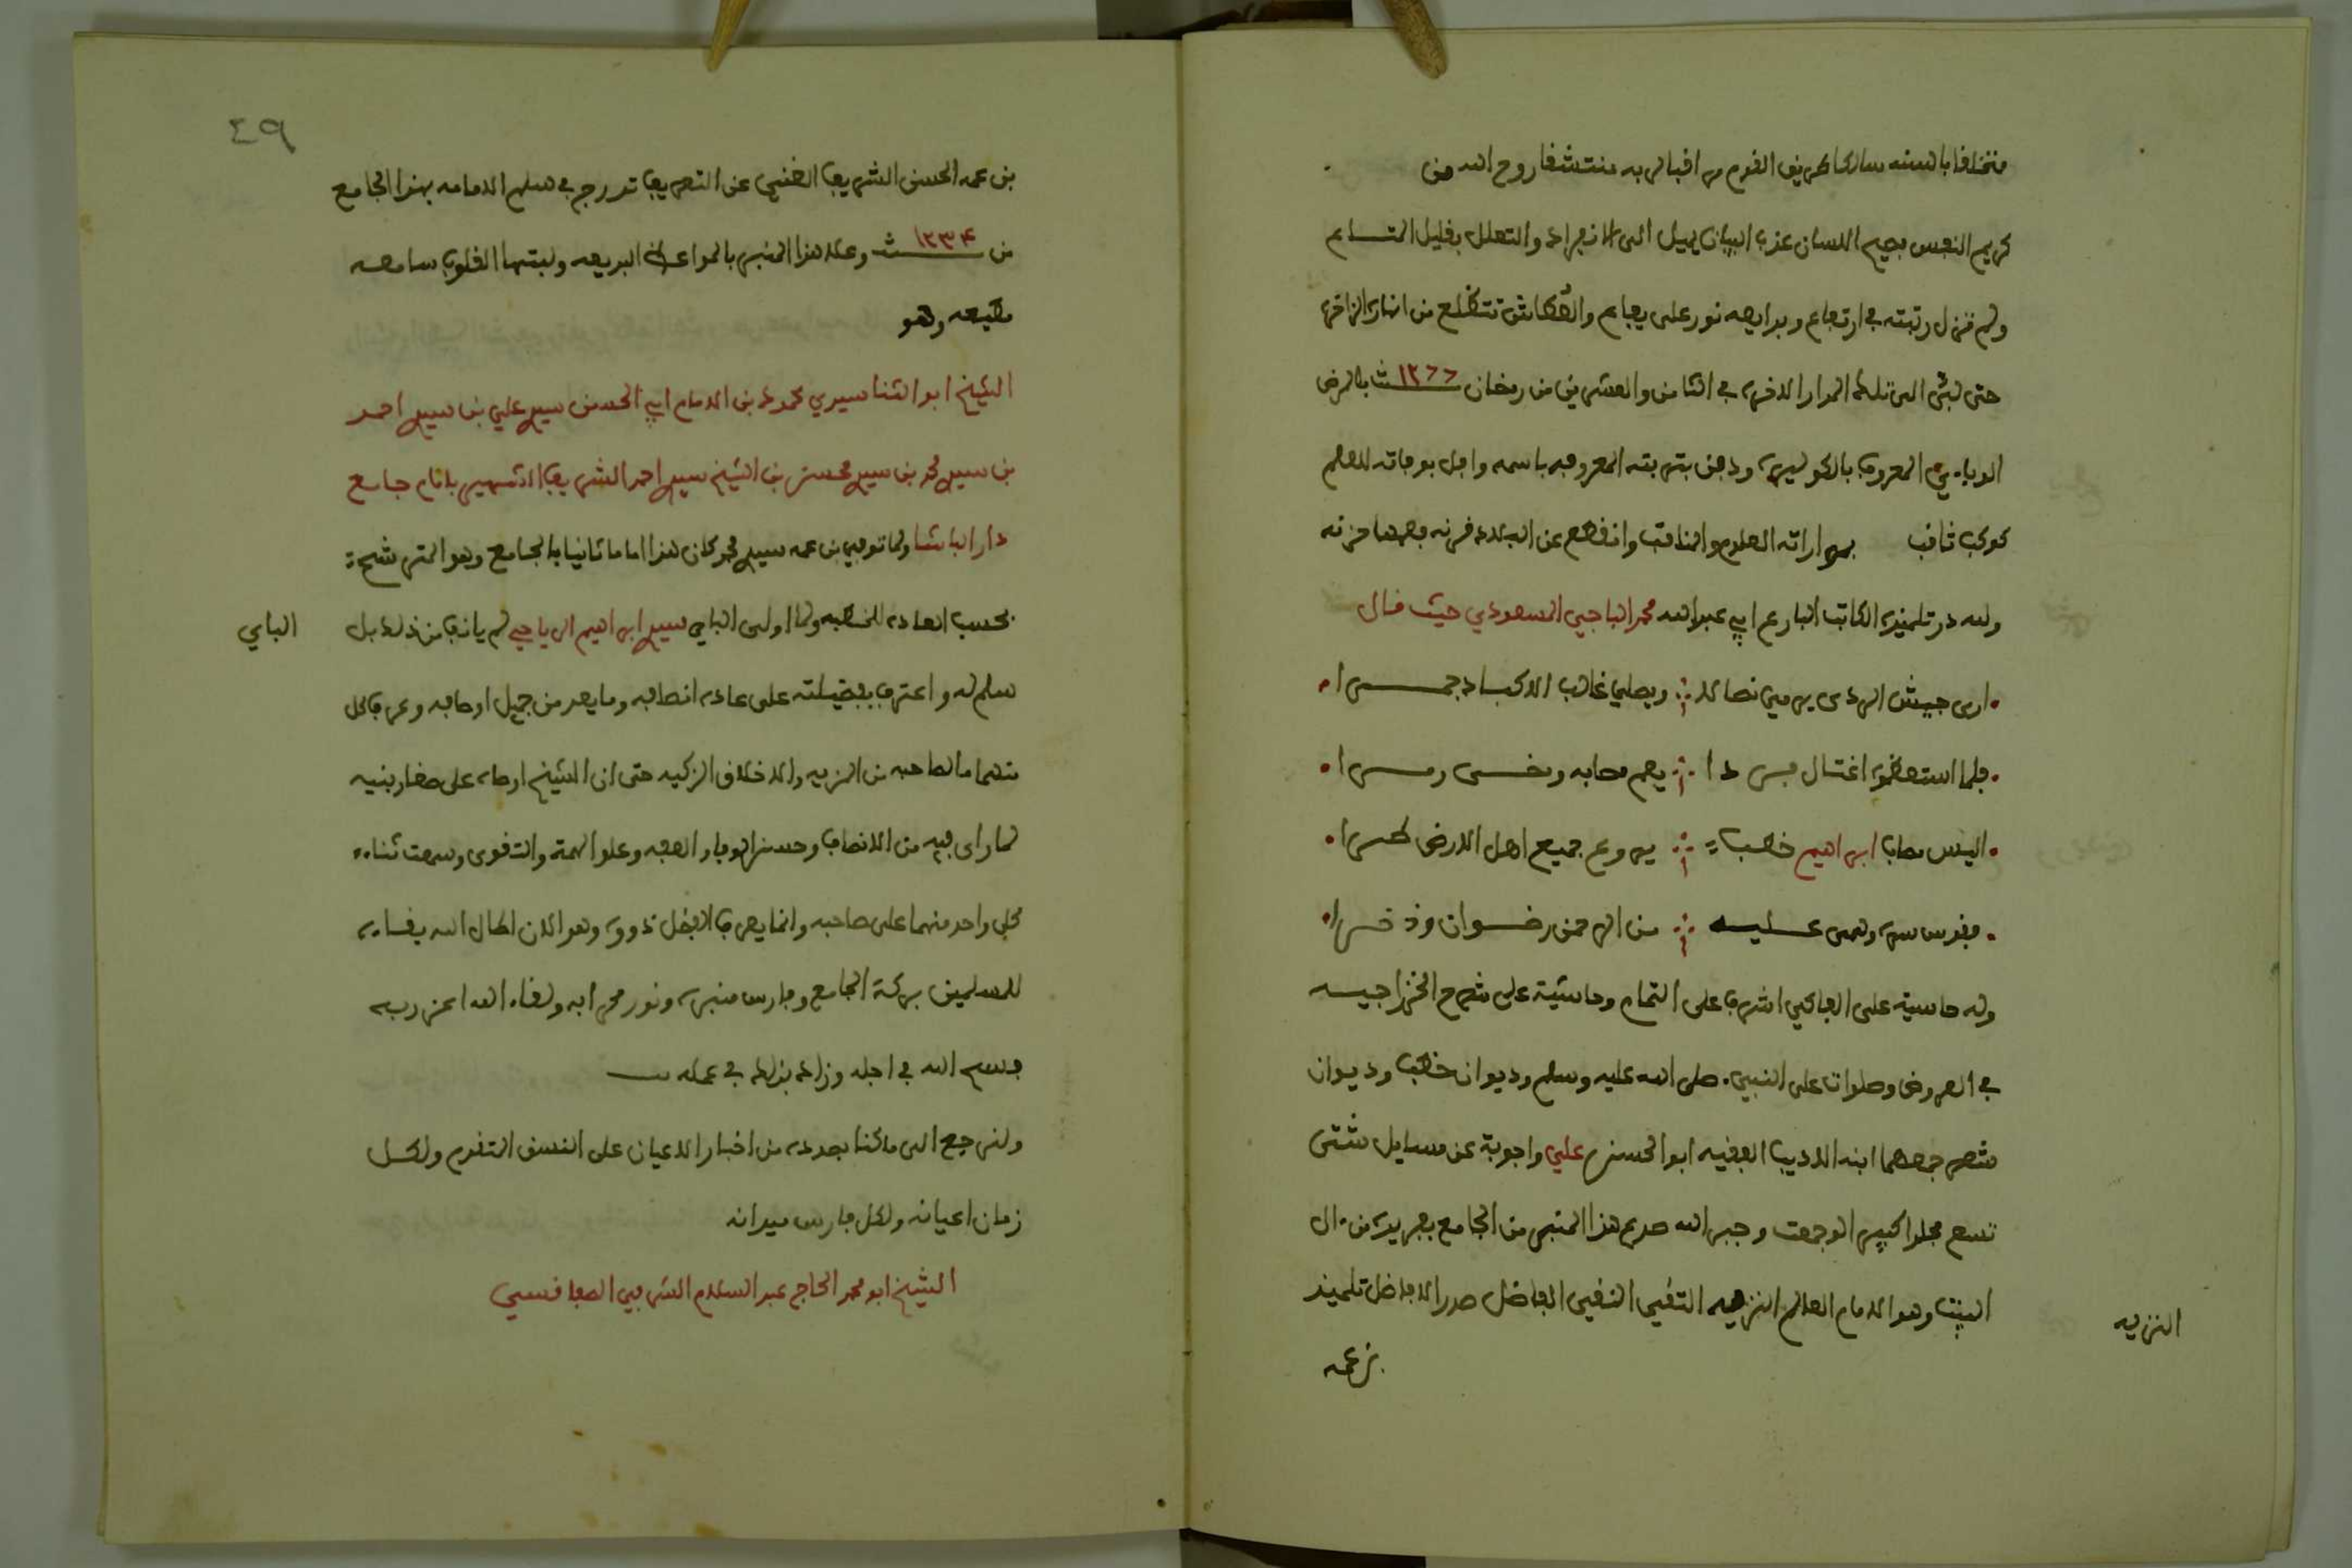 متخلفا بالسنه سالكا طريق القوم من اقبال به منتشفا روح الله من
كريم النفس فصيح اللسان عذب البيان يميل الى الانفراد والتعلل بقليل المتاع
ولم تزل رتبته في ارتفاع وبدايعه نور على يفاع والعطاش تتضلع من انهاره الزاخره
حتى لبى الى تلك الدار الاخره في الثامن والعشرين من رمضان ١٢٦٦ بالمرض
الوباءي المعروف بالكوليره ودفن بتربته المعروفه باسمه وافل بوفاته للعلم
كوكب ثاقب وارائه العلوم والمناقب وانقطع عن البلاد مزنه فعمها حزنه
ولله در تلميذه الكاتب البارع ابي عبد الله محمد الباجي المسعودي حيث قال
ارى جيش الردى يرمي نصالا ويصلي غالب الاكباد جمرا
فلما استعظموا اغتال فردا يعم مصابه ونخسى رمسا
اليس مصاب ابراهيم خطبا يروع جميع اهل الارض طرا
فقدس سره وهمى عليه من الرحمن رضوان وذخرا
وله حاشية على الفاكهي اشرف على التمام وحاشية على شرح الخزرجيه
في العروض وصلوات على النبي صلى الله عليه وسلم وديوان خطب وديوان
شعر جمعهما ابنه الاديب الفقيه ابو الحسن علي واجوبة عن مسايل شتى
تسع مجلدا كبيرا لو جمعت وجبر الله صدع هذا المنبر من الجامع بفريد من ءال
البيت وهو الامام العالم النزيه التقي النقي الفاضل صدر الافاضل تلميذ
النزيه
بن عمه
٤٩
بن عمه الحسن الشريف الغني عن التعريف تدرج في سلم الامامه بهذا الجامع
من ١٢٣٤ وعلا هذا المنبر بالمواعظ البديعه ولبتها القلوب سامعه
مطيعه وهو
الشيخ ابو الثنا سيدي محمود بن الامام ابي الحسن سيدي علي بن سيدي احمد
بن سيدي محمد بن سيدي محسن بن الشيخ سيدي احمد الشريف الشهير بامام جامع
دار الباشا ولما توفي بن عمه سيدي محمد كان هذا اماما ثانيا بالجامع وهو المترشح
بحسب العاده للخطبه ولما اولى الباي سيدي ابراهيم الرياحي لم يانف من ذلك بل
الباي
سلم له واعترف بفضيلته على عادة انصافه وما يعد من جميل اوصافه وعرف كل
منهما ما لصاحبه من المزيه والاخلاق الزكيه حتى ان الشيخ اوصاه على صغار بنيه
لما راى فيه من الانصاف وحسن الوفا والعفه وعلو الهمة والتقوى وسمعت ثناء
كل واحد منهما على صاحبه وانما يعرف الفضل ذووه وهو الان اطال الله بقاءه
للمسلمين بركة الجامع وفارس منبره ونور محرابه ولقاه الله اعز ربه
فسح الله في اجله وزاد بذلك في عمله
ولنرجع الى ما كنا بصدده من اخبار الاعيان على النسق المتقدم ولكل
زمان اعيانه ولكل فارس ميدانه
الشيخ ابو محمد الحاج عبد السلام الشرفي الصفاقسي